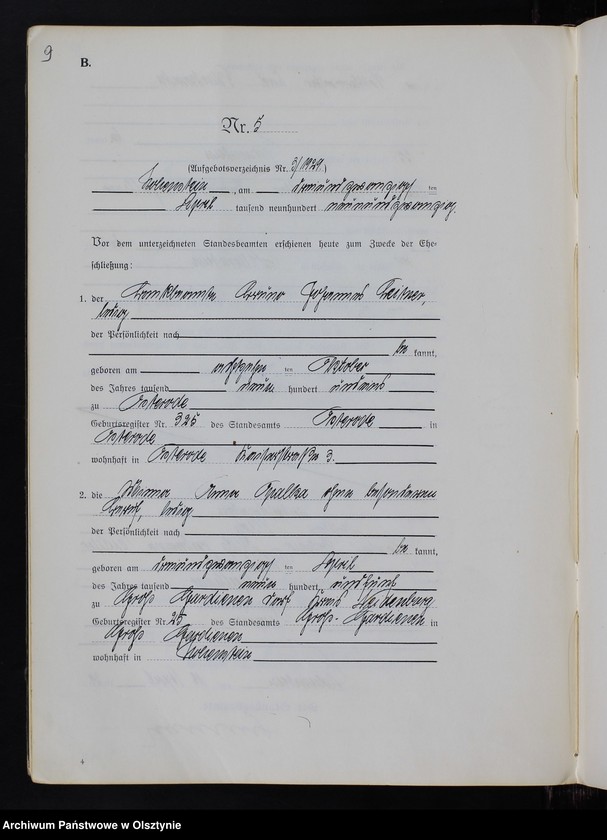 9
B.
Nr. 5
(Aufgebotsverzeichnis Nr. 3/1929.)
Hohenstein, am dreiundzwanzigsten
April tausend neunhundert neunundzwanzig.
Vor dem unterzeichneten Standesbeamten erschienen heute zum Zwecke der Ehe-
schließung:
1. der Bruno Johannes
ledig
der Persönlichkeit nach
be kannt,
geboren am achtzehn ten Oktober
des Jahres tausend neun hundert
zu Osterode
Geburtsregister Nr. 325 des Standesamts Osterode in
Osterode
wohnhaft in Osterode 3.
2. die Anna ohne besonderen
Beruf, ledig
der Persönlichkeit nach
be kannt,
geboren am dreiundzwanzigsten ten April
des Jahres tausend neun hundert undfünf
zu Groß Gardienen Dorf Kreis Neidenburg
Geburtsregister Nr. 25 des Standesamts Groß-Gardienen in
Groß Gardienen
wohnhaft in Hohenstein
4
Archiwum Państwowe w Olsztynie